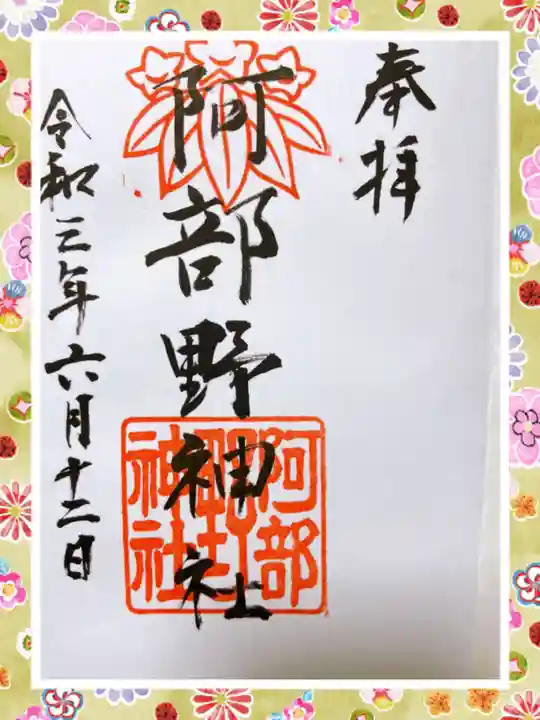 奉拝
阿部野神社
阿部野神社
令和三年六月十二日